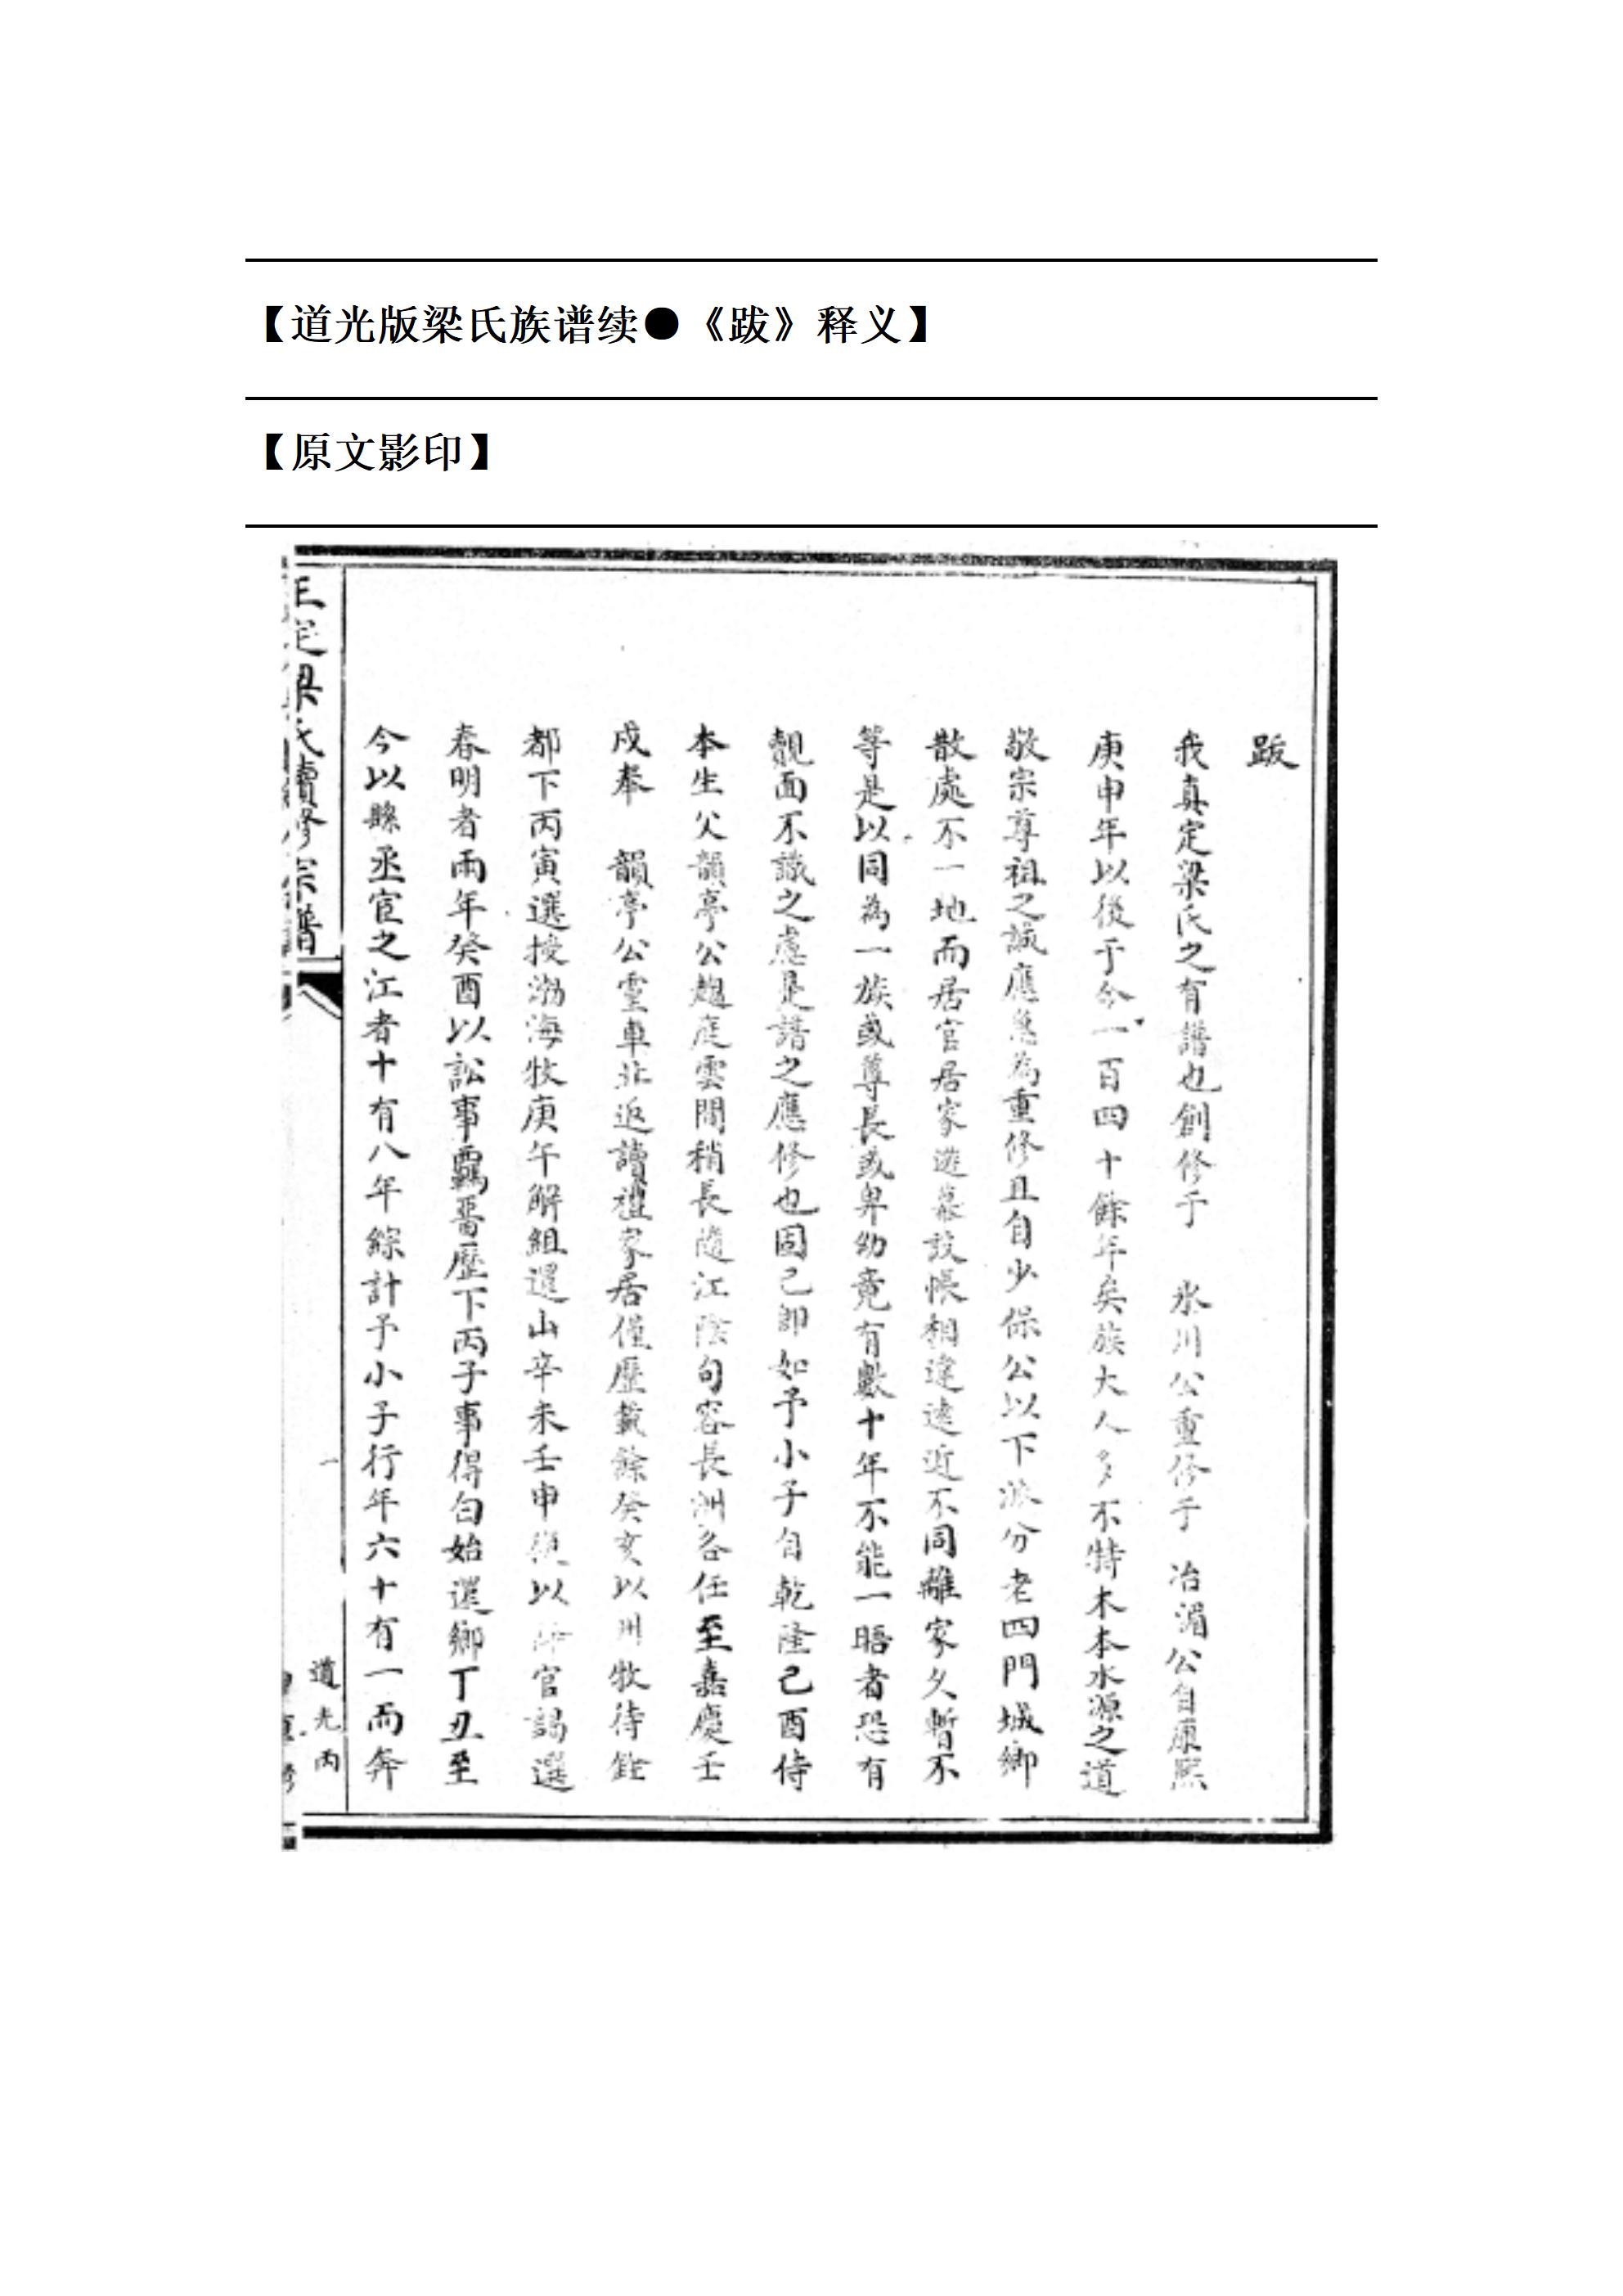 【道光版梁氏族谱续●《跋》释义】
【原文影印】
跋
我真定梁氏之有譜也創修于 氷川公重修于 冶湄公自康熙
庚申年以後于今一百四十餘年矣族大人多不特木本水源之道
敬宗尊祖之誠應急為重修且自少保公以下派分老四門城鄉
散處不一地而居官居家遊幕設帳相違遠近不同離家久暫不
等是以同為一族或尊長或卑幼竟有數十年不能一晤者恐有
覿面不識之慮是譜之應修也固已即如予小子自乾隆己酉侍
本生父韻亭公趨庭雲間稍長隨江陰句容長洲各任至嘉慶壬
戌奉 韻亭公靈車北返讀禮家居僅歷載餘癸亥以州牧待銓
都下丙寅選授渤海牧庚午解組還山辛未壬申復以 官謁選
春明者兩年癸酉以訟事羈晉歷下丙子事得白始還鄉丁丑至
今以縣丞宦之江者十有八年綜計予小子行年六十有一而奔
正定梁氏續修宗譜
一
道光丙